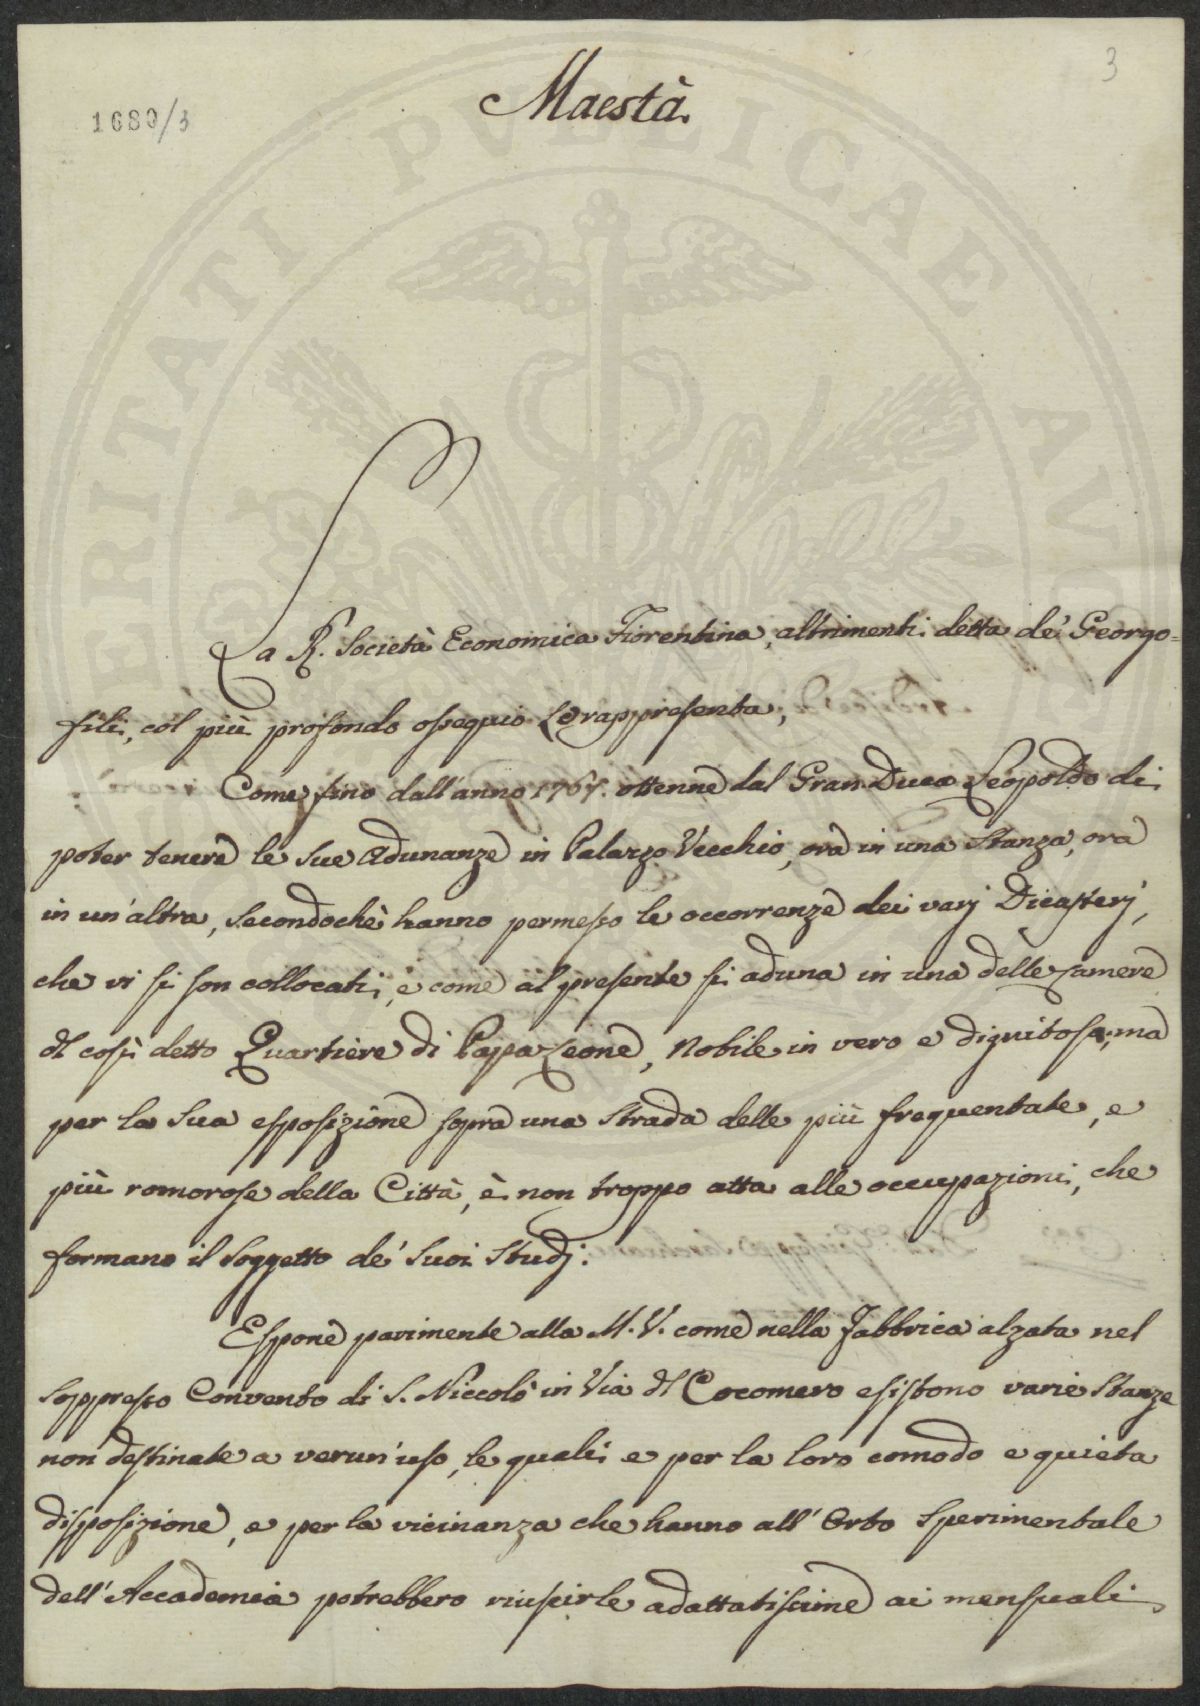 3
1680/3
Maestà.
La R. Società Economica Fiorentina, altrimenti detta de' Georgo=
fili, col più profondo ossequio Le rappresenta,
Come fino dall'anno 1767. ottenne dal Gran Duca Leopoldo di
poter tenere le sue Adunanze in Palazzo Vecchio, ora in una Stanza, ora
in un'altra, secondochè hanno permesso le occorrenze dei varj Dicasterj,
che vi si son collocati, e come al presente si aduna in una delle camere
del così detto Quartiere di Papa Leone, Nobile in vero e dignitosa; ma
per la sua esposizione sopra una Strada delle più frequentate, e
più romorose della Città, è non troppo atta alle occupazioni, che
formano il soggetto de' suoi Studj.
Espone parimente alla M. V. come nella Fabbrica alzata nel
soppresso Convento di S. Niccolò in Via del Cocomero esistono varie Stanze
non destinate a verun'uso, le quali e per la loro comodo e quieta
disposizione, e per la vicinanza che hanno all'Orto Sperimentale
dell'Accademia potrebbero riuscirle adattatissime ai mensuali
PVBLICAE